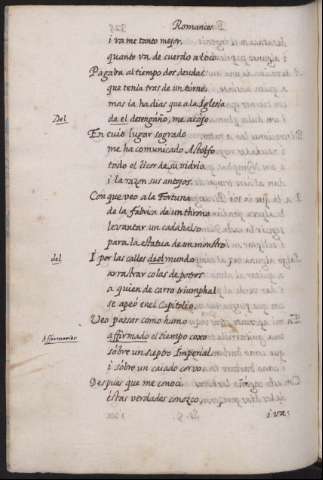 Romances
i va me tanto mejor,
quanto va de cuerdo a loco.
Pagaba al tiempo dos deudas
que tenía tras de un torno
mas ia ha dias que a la Iglesia
Del
de el desengaño, me acojo.
En cuio lugar sagrado
me ha comunicado Astolfo
todo el licor de su vidrio
i la razon sus antojos.
Con que veo a la Fortuna
de la fabrica de un throno
levantar un cadahalso
para la estatua de un monstro
del
I por las calles del mundo
arrastrar colas de potros
a quien de carro triumphal
se apeó en el Capitolio.
Veo passar como humo
Affirmando
affirmado el tiempo coxo
sobre un sceptro Imperial
i sobre un caiado corvo.
Despues que me conoci,
estas verdades conozco,
i va: